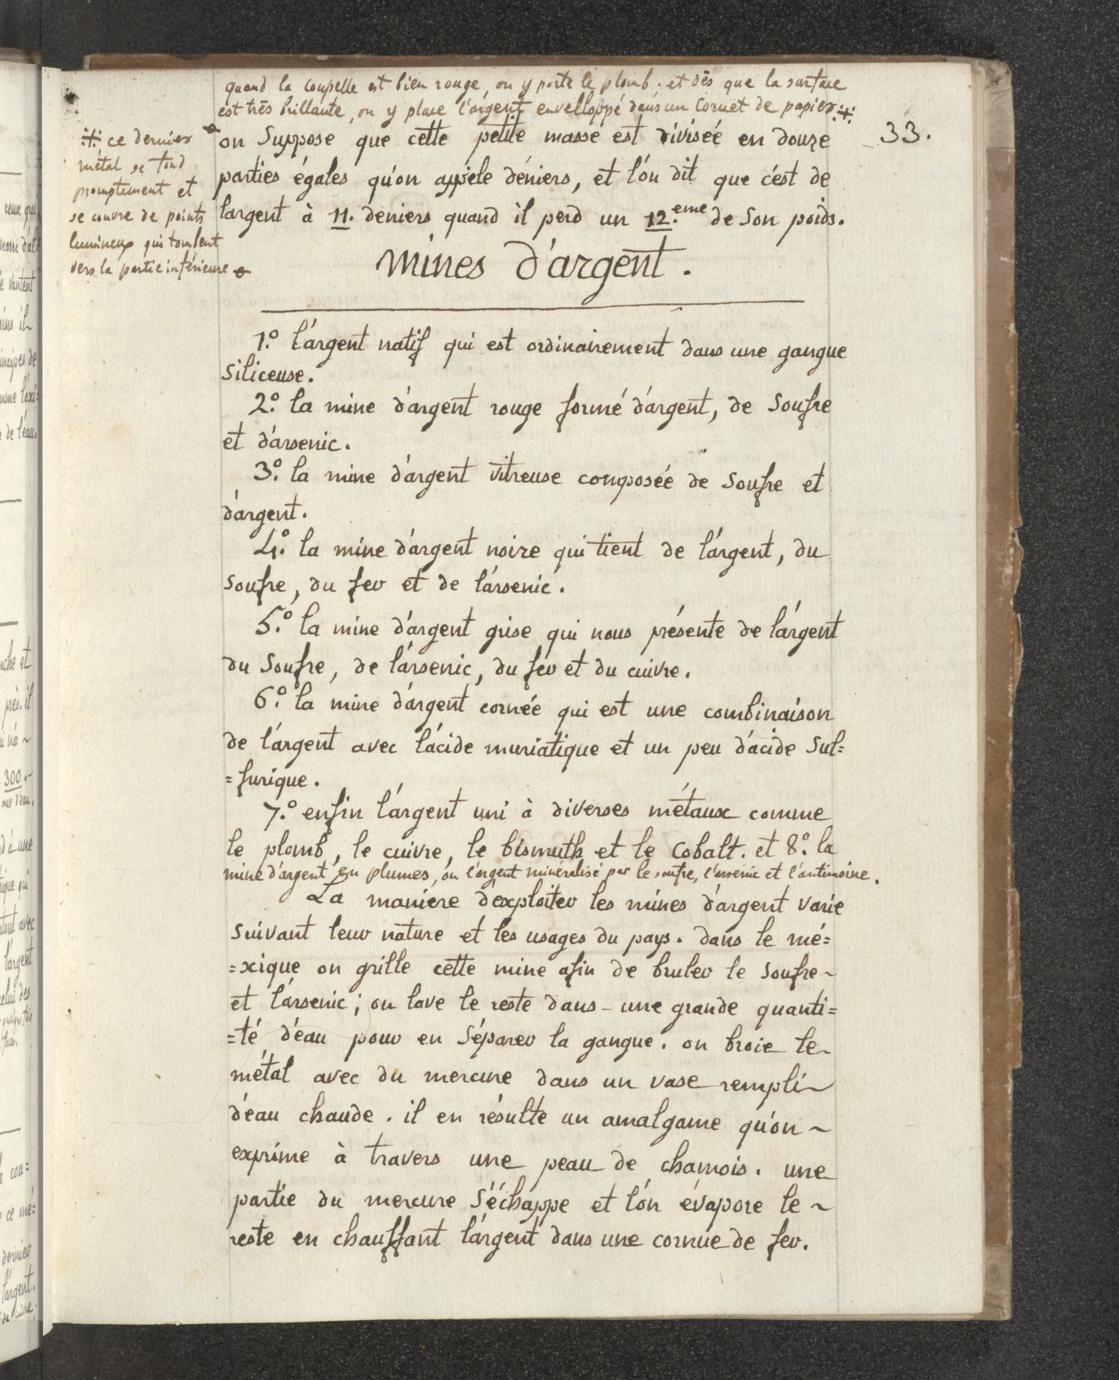 quand la coupelle est bien rouge, on y porte le plomb. et dès que la surface
est très brillante, on y place l'argent enveloppé dans un Cornet de papier. ⁜
33.
⁜ ce dernier
métal se fond
promptement et
se couvre de points
lumineux qui tombent
vers la partie inférieure
on Suppose que cette petite masse est divisée en douze
parties égales qu'on appèle déniers, et l'on dit que c'est de
l'argent à 11. deniers quand il perd un 12.eme de Son poids.
Mines d'argent.
1.º l'argent natif qui est ordinairement dans une gangue
Siliceuse.
2.º la mine d'argent rouge formé d'argent, de Soufre
et d'arsenic.
3.º la mine d'argent vitreuse composée de Soufre et
d'argent.
4.º la mine d'argent noire qui tient de l'argent, du
Soufre, du fer et de l'arsenic.
5.º la mine d'argent grise qui nous présente de l'argent
du Soufre, de l'arsenic, du fer et du cuivre.
6.º la mine d'argent cornée qui est une combinaison
de l'argent avec l'acide muriatique et un peu d'acide Sul=
=furique.
7.º enfin l'argent uni à diverses métaux comme
le plomb, le cuivre, le bismuth et le Cobalt. et 8.º la
mine d'argent en plumes, ou l'argent minéralisé par le soufre, l'arsenic et l'antimoine.
La maniere d'exploiter les mines d'argent varie
Suivant leur nature et les usages du pays. dans le mé=
=xique on grille cette mine afin de bruler le Soufre ~
et l'arsenic; on lave le reste dans une grande quanti=
=té d'eau pour en Séparer la gangue. on broie le
métal avec du mercure dans un vase rempli
d'eau chaude. il en résulte un amalgame qu'on ~
exprime à travers une peau de chamois. une
partie du mercure S'échappe et l'on évapore le ~
reste en chauffant l'argent dans une cornue de fer.